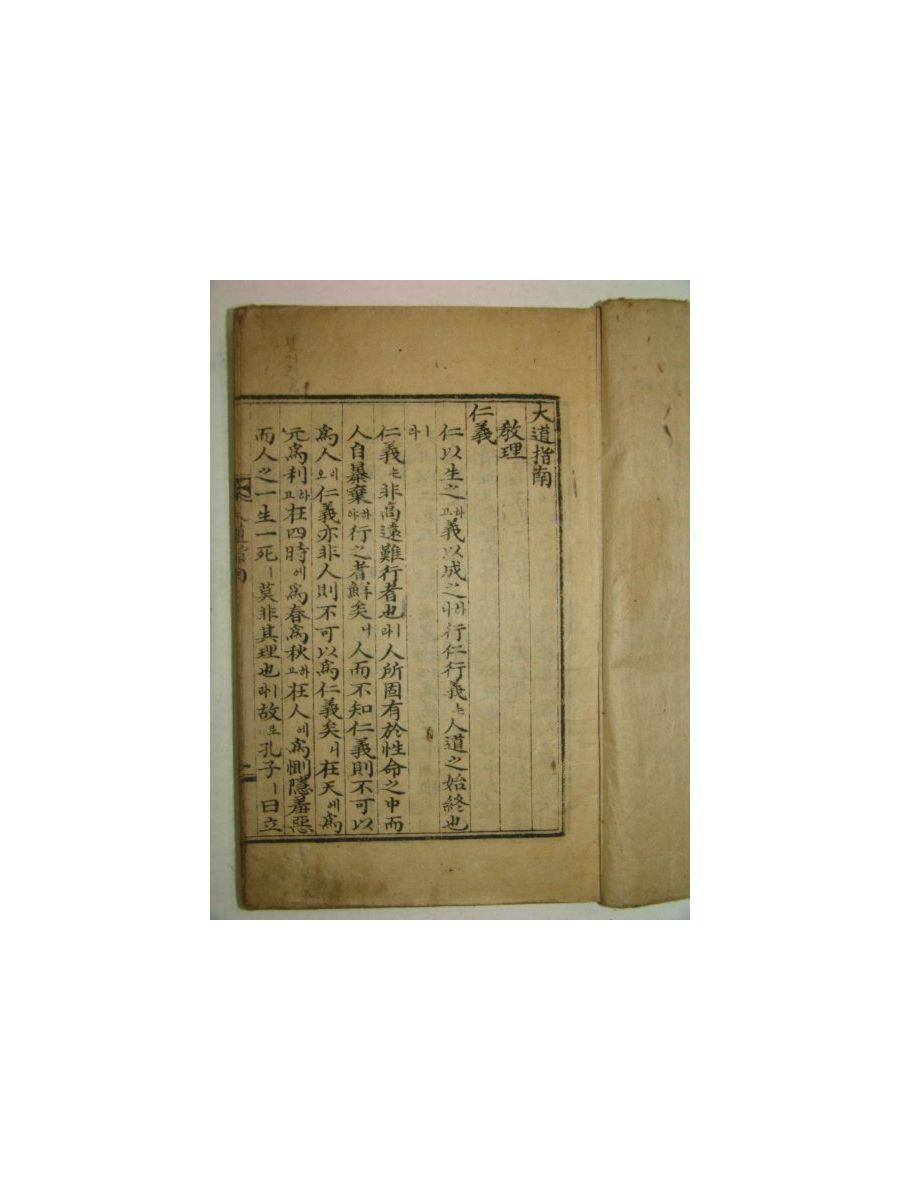 大道指南
敎理
仁義
仁以生之하고義以成之하나니行仁行義는人道之始終也
ㅣ라
仁義는非高遠難行者也ㅣ라人所固有於性命之中而
人自暴棄하야行之者鮮矣니人而不知仁義則不可以
爲人이오仁義亦非人則不可以爲仁義矣니在天에爲
元爲利하고在四時에爲春爲秋하고在人에爲惻隱羞惡
而人之一生一死ㅣ莫非其理也ㅣ라故로孔子ㅣ曰立